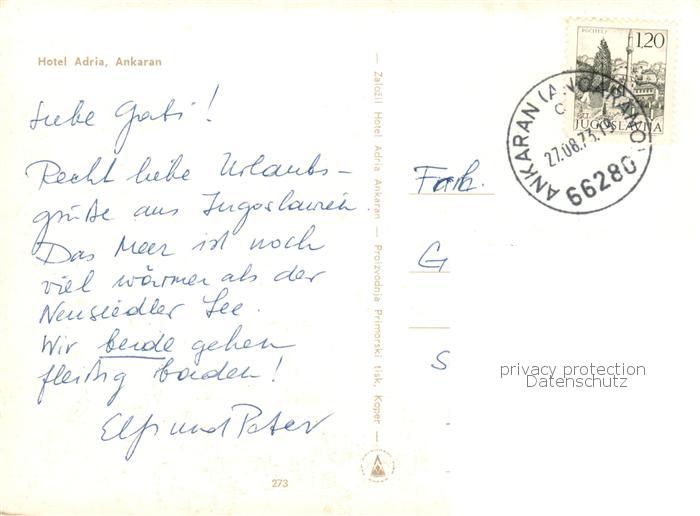 Hotel Adria, Ankaran
Liebe Gabi!
Recht liebe Urlaubs-
grüße aus Jugoslawien.
Das Meer ist noch
viel wärmer als der
Neusiedler See.
Wir beide gehen
fleißig baden!
Elfi und Peter
273
— Založil Hotel Adria Ankaran — Proizvodnja Primorski tisk, Koper —
POČITELJ
1,20
JUGOSLAVIJA
ANKARAN (ANCARANO)
27.08.73.19
66280
Frk.
G
S
privacy protection
Datenschutz